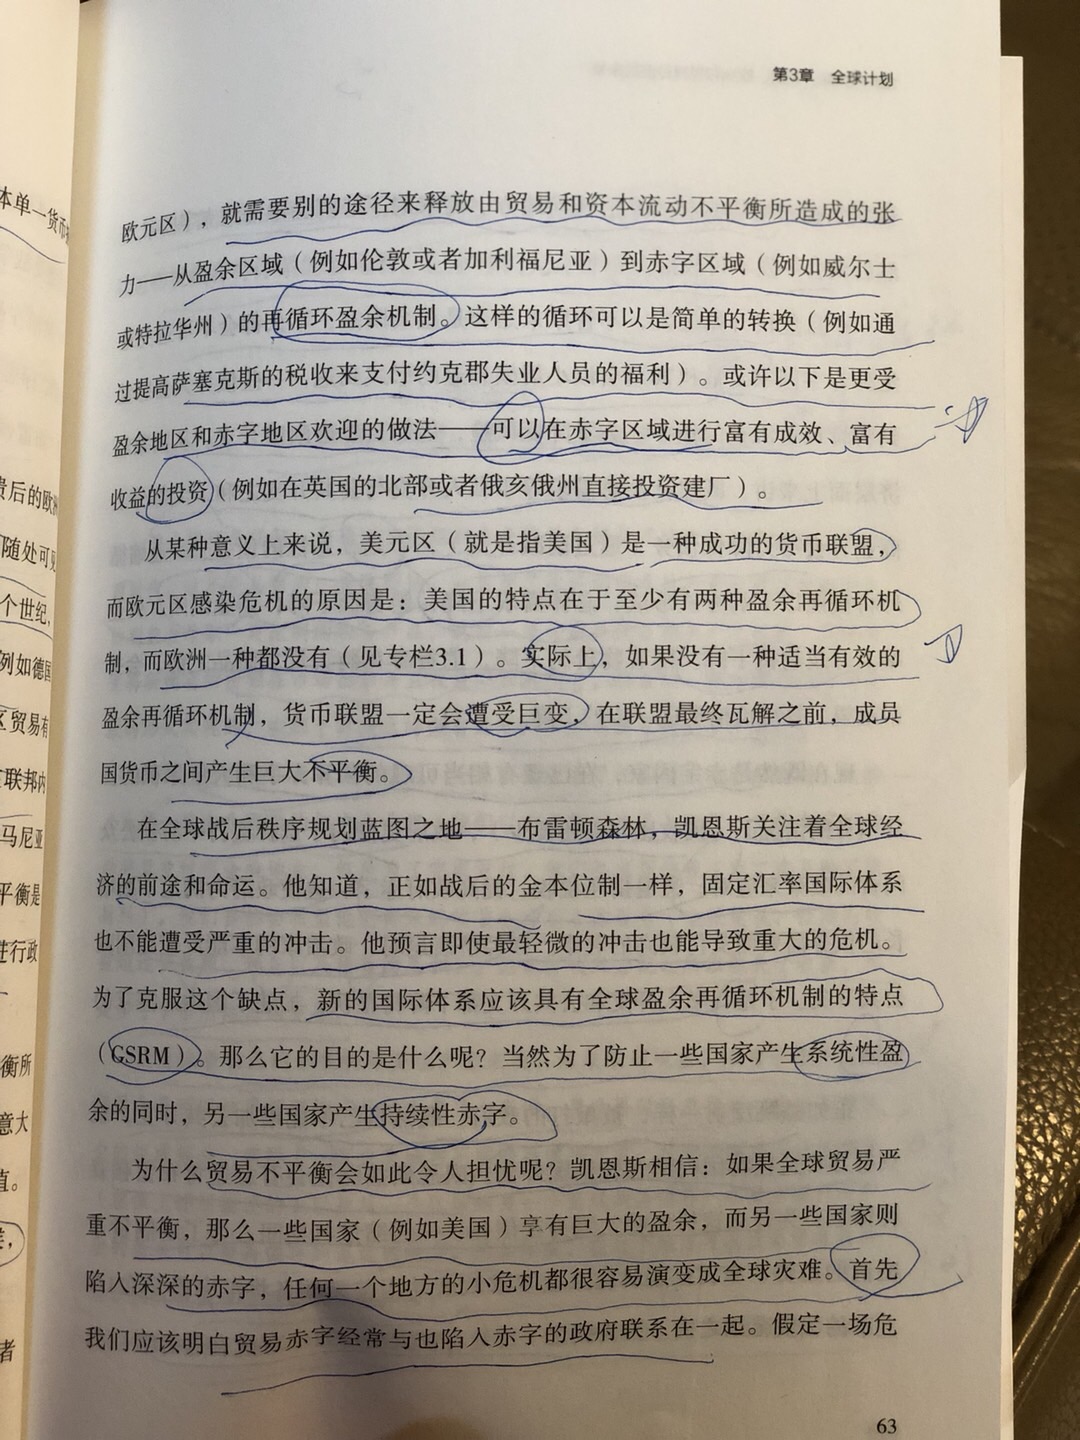 第3章 全球计划
欧元区），就需要别的途径来释放由贸易和资本流动不平衡所造成的张
力——从盈余区域（例如伦敦或者加利福尼亚）到赤字区域（例如威尔士
或特拉华州）的再循环盈余机制。这样的循环可以是简单的转换（例如通
过提高萨塞克斯的税收来支付约克郡失业人员的福利）。或许以下是更受
盈余地区和赤字地区欢迎的做法——可以在赤字区域进行富有成效、富有
收益的投资（例如在英国的北部或者俄亥俄州直接投资建厂）。
从某种意义上来说，美元区（就是指美国）是一种成功的货币联盟，
而欧元区感染危机的原因是：美国的特点在于至少有两种盈余再循环机
制，而欧洲一种都没有（见专栏3.1）。实际上，如果没有一种适当有效的
盈余再循环机制，货币联盟一定会遭受巨变，在联盟最终瓦解之前，成员
国货币之间产生巨大不平衡。
在全球战后秩序规划蓝图之地——布雷顿森林，凯恩斯关注着全球经
济的前途和命运。他知道，正如战后的金本位制一样，固定汇率国际体系
也不能遭受严重的冲击。他预言即使最轻微的冲击也能导致重大的危机。
为了克服这个缺点，新的国际体系应该具有全球盈余再循环机制的特点
（GSRM）。那么它的目的是什么呢？当然为了防止一些国家产生系统性盈
余的同时，另一些国家产生持续性赤字。
为什么贸易不平衡会如此令人担忧呢？凯恩斯相信：如果全球贸易严
重不平衡，那么一些国家（例如美国）享有巨大的盈余，而另一些国家则
陷入深深的赤字，任何一个地方的小危机都很容易演变成全球灾难。首先
我们应该明白贸易赤字经常与也陷入赤字的政府联系在一起。假定一场危
63
本单一货币
贵后的欧洲
随处可见
个世纪，
例如德国
区贸易有
区联邦内
马尼亚
平衡是
进行政
衡所
意大
值。
者